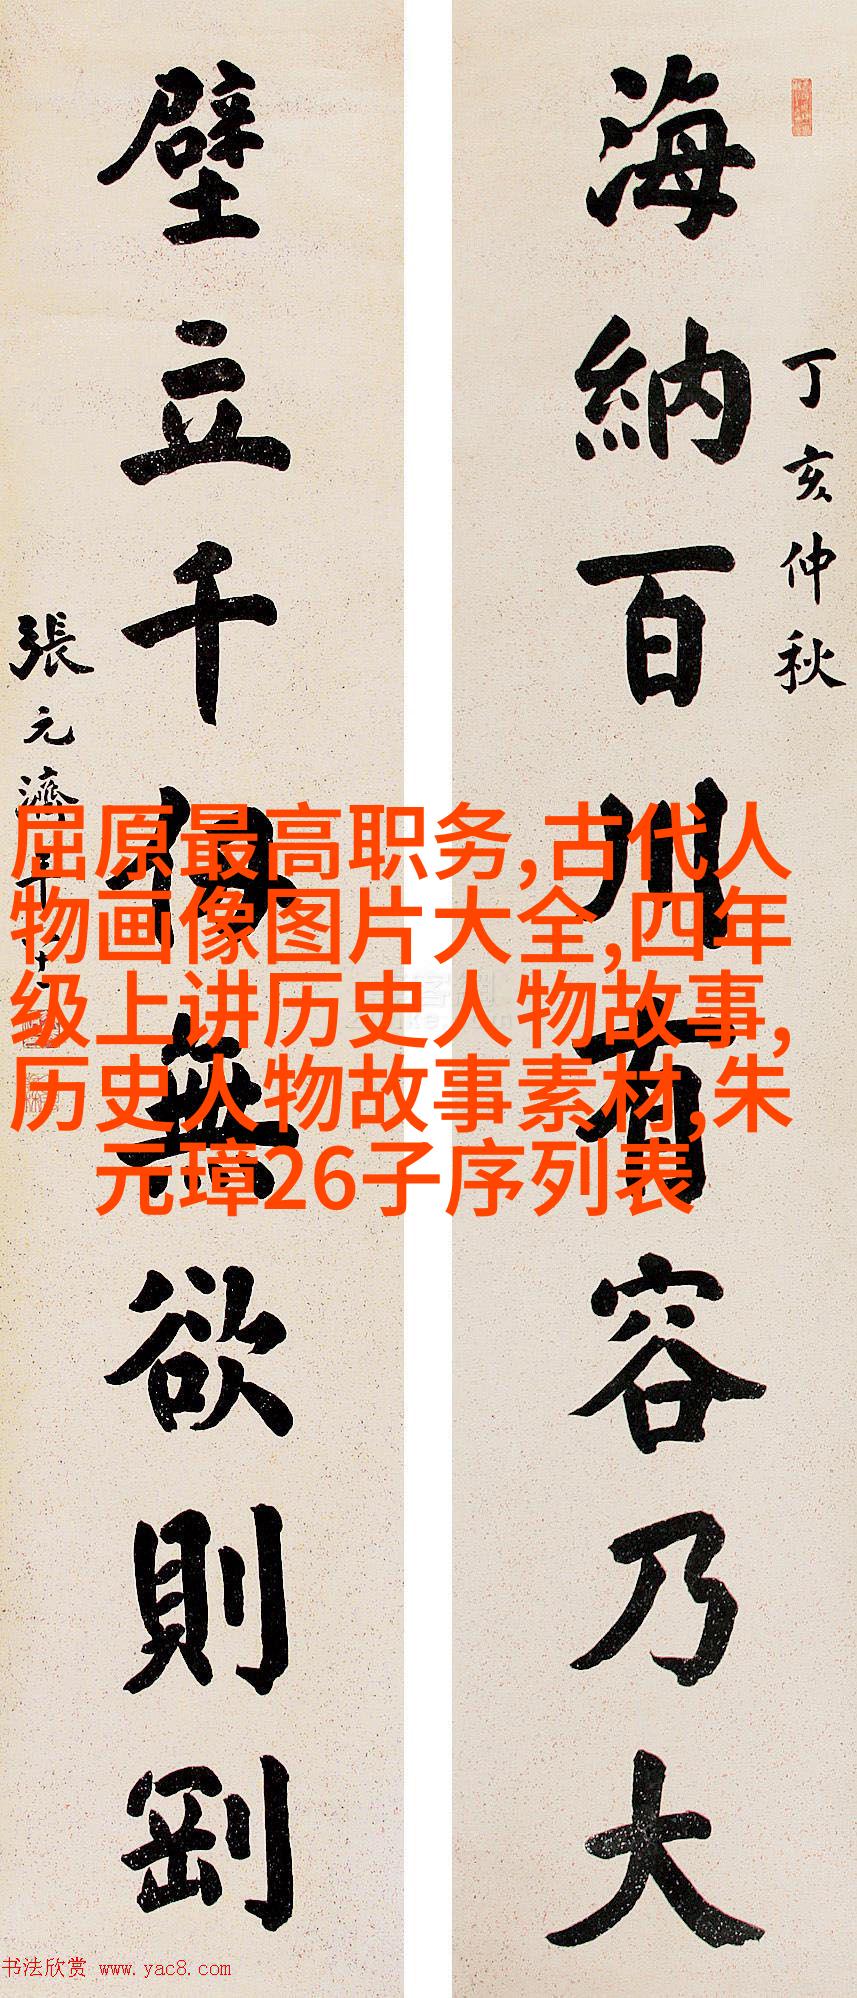 海納百川有容乃大
丁亥仲秋
壁立千仞無欲則剛
張元濟
屈原最高职务,古代人
物画像图片大全,四年
级上讲历史人物故事,
历史人物故事素材,朱
元璋26子序列表
书法欣赏 www.yac8.com